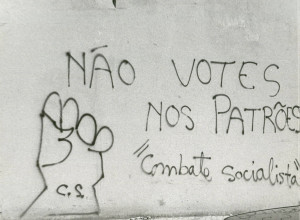 NÃO VOTES
NOS PATRÕES
"Combate socialista"
C.S.